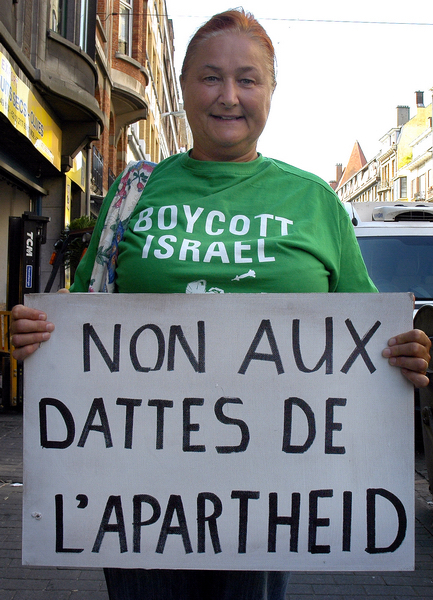 BOYCOTT
ISRAEL
TCM
NON AUX
DATTES DE
L'APARTHEID